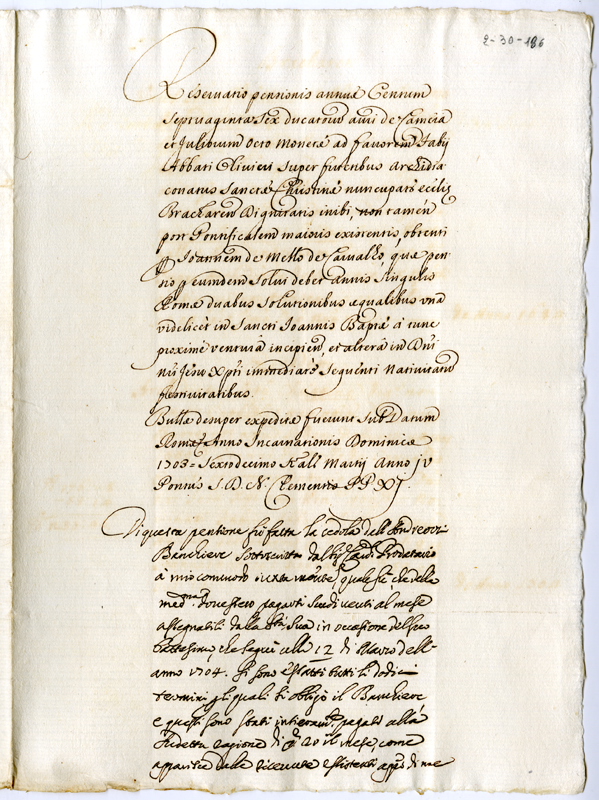 2-30-186
Reservatio pensionis annuæ Centum
Septuaginta Sex ducatorũ auri de Camera
et Juliorum Octo Monetæ ad favorem Fabij
Abbatis Olivieri super fructibus Archidia
conatus Sanctæ Christinæ nuncupati ecclie
Bracharen Dignitatis inibi, non tamen
post Pontificalem maioris existentis, obtenti
p Joannem de Mello de Carvalho, quæ pen
sio p eundem solui debet annis singulis
Romæ duabus solutionibus æqualibus una
videlicet in Sancti Joannis Baptæ a tunc
proxime ventura incipien, et altera in Dni
nri Jesu Xpti immediate sequenti Nativitatũ
festivitatibus.
Bullæ desuper expeditæ fuerunt sub Datum
Romæ Anno Incarnationis Dominicæ
1703 = Sextodecimo Kall Martij Anno IV
Pontus S. D. N. Clementis PP XI.
Di questa pensione fù fatta la cedola dall'
Banchiere sottoscritta dal Prodatario
à mio commodo iuxta qual fù, che della
med.ma dovessero pagarsi scudi venti al mese
assegnabili dalla Stà Sua in occasione del suo
che seguì alli 12 di Marzo dell'
anno 1704. Si sono esatti tutti li dodici
termini gli quali si obligò il Banchiere
e questi sono stati intieramte pagati alla
sudetta ragione di 20 il mese, come
apparisce dalle ricevute esistenti app.o di me